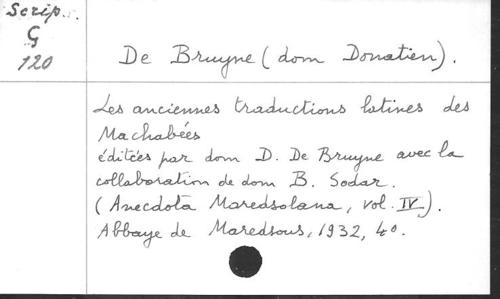 Scrip.
G
120
De Bruyne (dom Donatien).
Les anciennes traductions latines des
Machabées
éditées par dom D. De Bruyne avec la
collaboration de dom B. Sodar.
(Anecdota Maredsolana, vol. IV).
Abbaye de Maredsous, 1932, 4o.